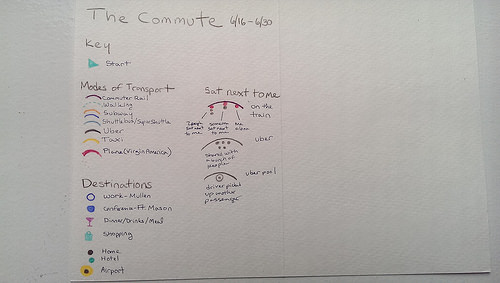 The Commute 6/16-6/30
Key
Start
Modes of Transport
Commuter Rail
Walking
Subway
Shuttlebus/SuperShuttle
Uber
Taxi
Plane (Virgin America)
Destinations
Work-Mullen
Conference-Ft. Mason
Dinner/Drinks/Meal
Shopping
Home
Hotel
Airport
Sat next to me
on the
train
sat next
to me
someone
sat next
to me
me
alone
uber
shared with
a bunch of
people
uber pool
driver picked
up another
passenger